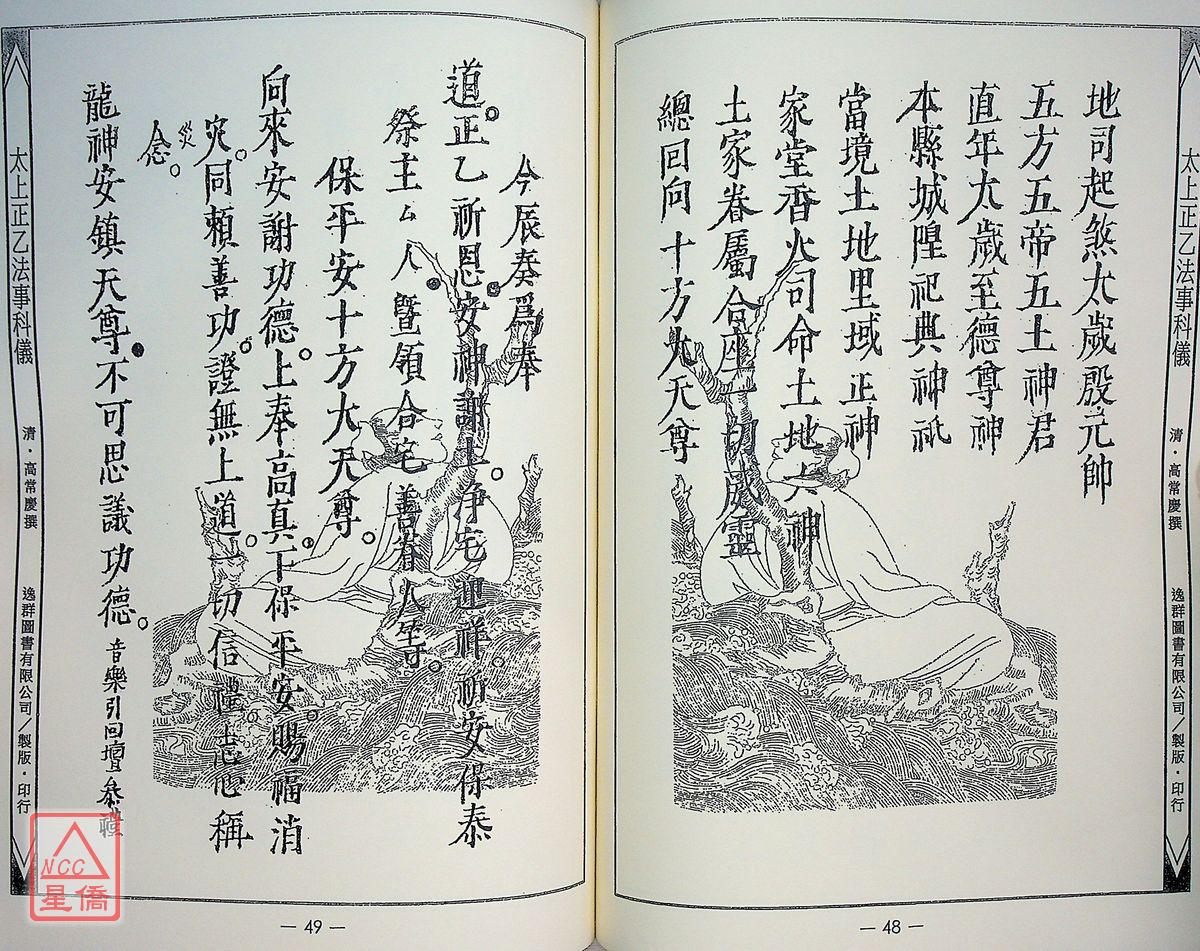 太上正乙法事科儀
清·高常慶撰
逸群圖書有限公司／製版·印行
地司起煞太歲殷元帥
五方五帝五土神君
直年太歲至德尊神
本縣城隍祀典神祇
當境土地里域正神
家堂香火司命土地六神
土家眷屬合座一切威靈
總回向十方大天尊
— 48 —
今辰奏爲奉
道。正乙祈恩安神謝土。净宅迎祥。祈安保泰
祭主厶人暨領合宅善眷人等。
保平安十方大天尊。
向來安謝功德。上奉高真。下保平安。賜福消
灾。同賴善功。證無上道。一切信禮。志心稱
災
念。
龍神安鎮天尊不可思議功德。音樂引回壇叅禮
太上正乙法事科儀
清·高常慶撰
逸群圖書有限公司／製版·印行
— 49 —
NCC
星僑